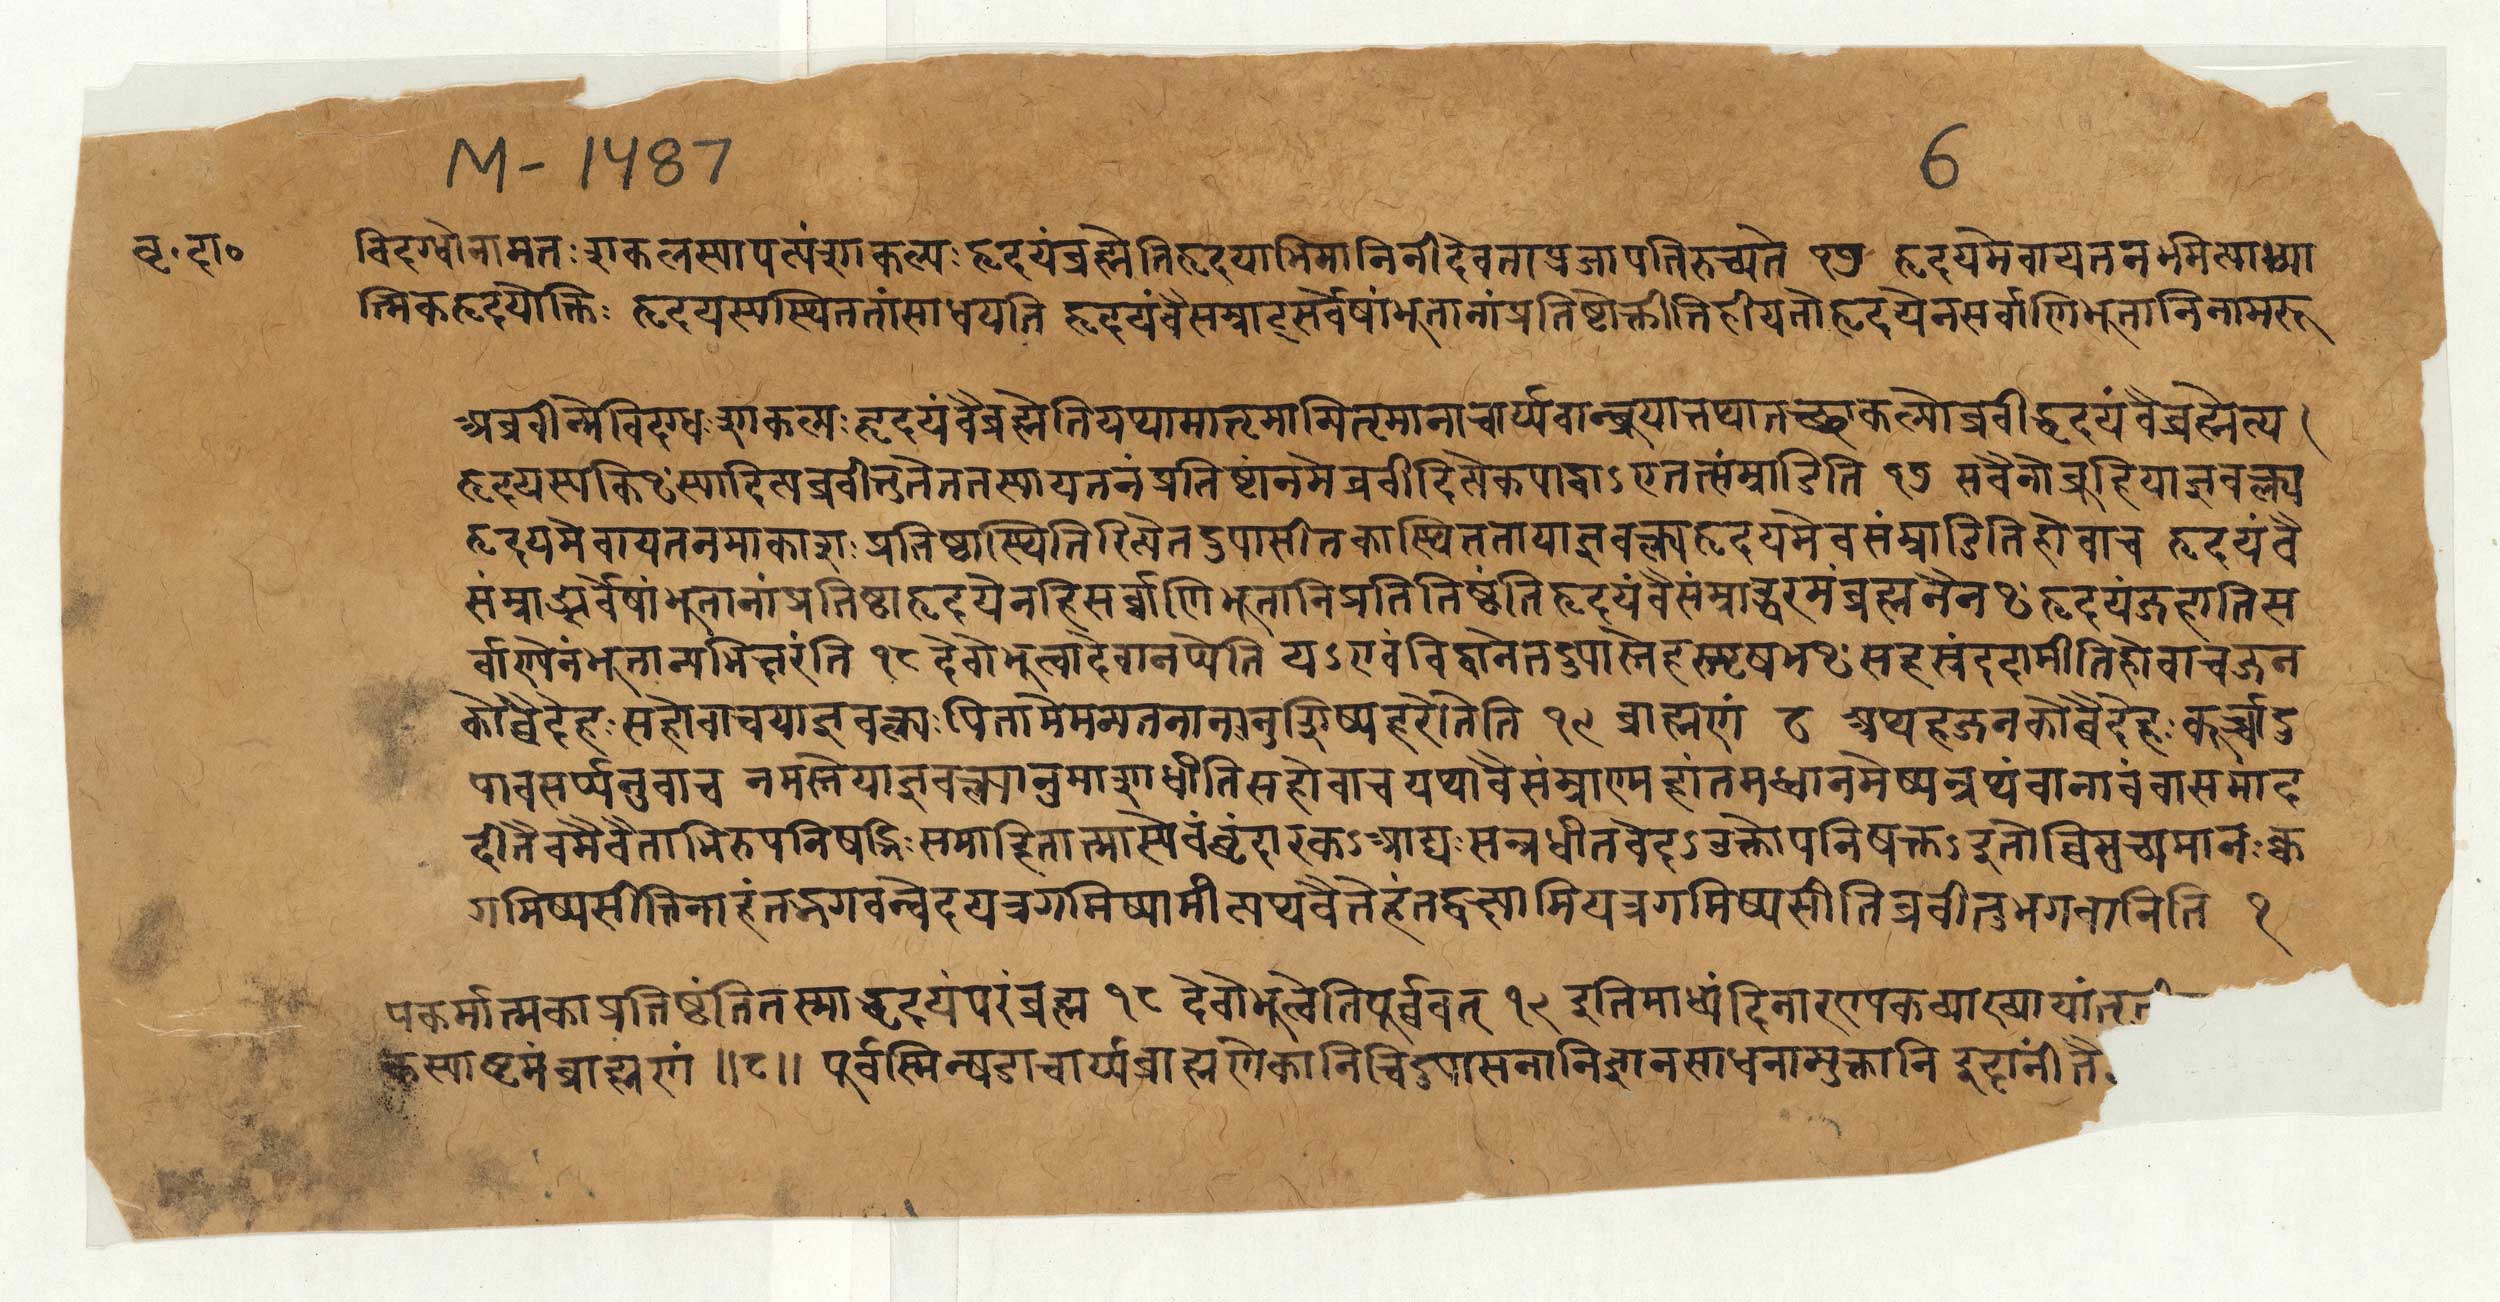 M-1487 6
बृ॰दा॰ विदग्धोनामतः शकलस्यापत्यंशाकल्यः हृदयंब्रह्मेतिहृदयाभिमानिनीदेवताप्रजापतिरुच्यते १७ हृदयमेवायतनममित्याध्या
त्मिकहृदयोक्तिः हृदयस्यस्थिततांसाधयति हृदयंवैसम्राट्सर्वेषांभूतानांप्रतिष्टोक्तीतिहीयतोहृदयेनसर्वाणिभूतानिनामरू
अब्रवीन्मेविदग्धःशाकल्यःहृदयंवैब्रह्मेतियथामातृमान्पितृमानाचार्य्यवान्ब्रूयात्तथातच्छाकल्योब्रवीद्धृदयंवैब्रह्मेत्य
हृदयस्यकिᳪस्यादित्यब्रवीत्तुतेतत्तस्यायतनंप्रतिष्टांनमेब्रवीदित्येकपाद्वाऽएतत्संम्राडिति १७ सवैनोब्रूहियाज्ञवल्क्य
हृदयमेवायतनमाकाशःप्रतिष्ठास्थितिरित्येनदुपासीतकास्थिततायाज्ञवल्क्यहृदयमेवसंम्राडितिहोवाच हृदयंवै
संम्राट्सर्वेषांभूतानांप्रतिष्ठाहृदयेनहिसर्व्वाणिभूतानिप्रतितिष्ठंतिहृदयंवैसंम्राट्परमंब्रह्मनैनᳪहृदयंजहातिस
र्वाण्येनंभूतान्यभिक्षरंति १८ देवोभूत्वादेवानप्येति यऽएवंविद्वानेतदुपास्तेहस्त्यृषभᳪसहस्रंददामीतिहोवाचजन
कोवैदेहःसहोवाचयाज्ञवल्क्यःपितामेमन्यतनानानुशिष्यहरेतेति १९ ब्राह्मणं ८ अथहजनकोवैदेहःकूर्च्चादु
पावसर्प्पन्नुवाच नमस्तेयाज्ञवल्क्यानुमाशाधीतिसहोवाचयथावैसंम्राण्महांतमध्वानमेष्यन्रथंवानावंवासमांद
दीतैवमेवैताभिरुपनिषद्भिःसमाहितात्मास्येवंवृंदारकऽआढ्यःसन्नधीतवेदऽउक्तोपनिषत्कऽइतोविमुच्यमानःक्व
गमिष्यसीतिनाहंतद्भगवन्वेदयत्रगमिष्यामीत्यथवैतेहंतद्वक्ष्यामियत्रगमिष्यसीतिब्रवीतुभगवानिति १
पकर्मात्मकाप्रतिष्ठंतितस्माद्धृदयंपरंब्रह्म १८ देवोभूत्वेतिपूर्व्ववत् १९ इतिमाध्यंदिनारण्यकव्याख्यायां
कस्याष्टमंब्राह्मणं ॥८॥ पूर्वस्मिन्षडाचार्य्यब्राह्मणेकानिचिदुपासनानिज्ञानसाधनान्युक्तानि इदानीं